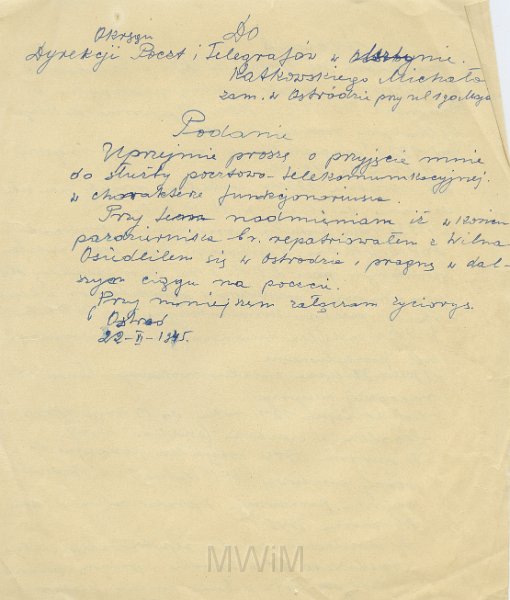 Do
Okręgu
Dyrekcji Poczt i Telegrafów w Olsztynie.
Ratkowskiego Michała
zam. w Ostródzie przy ul 1go Maja
Podanie
Uprzejmie proszę o przyjęcie mnie
do służby pocztowo-telekomunikacyjnej
w charakterze funkcjonariusza.
Przy tem nadmieniam iż w końcu
października br. repatriowałem z Wilna
Osiedliłem się w Ostrodzie, pragnę w dal-
szym ciągu na poczcie.
Przy niniejszem załączam życiorys.
Ostród
22-II-1945.
MWiM